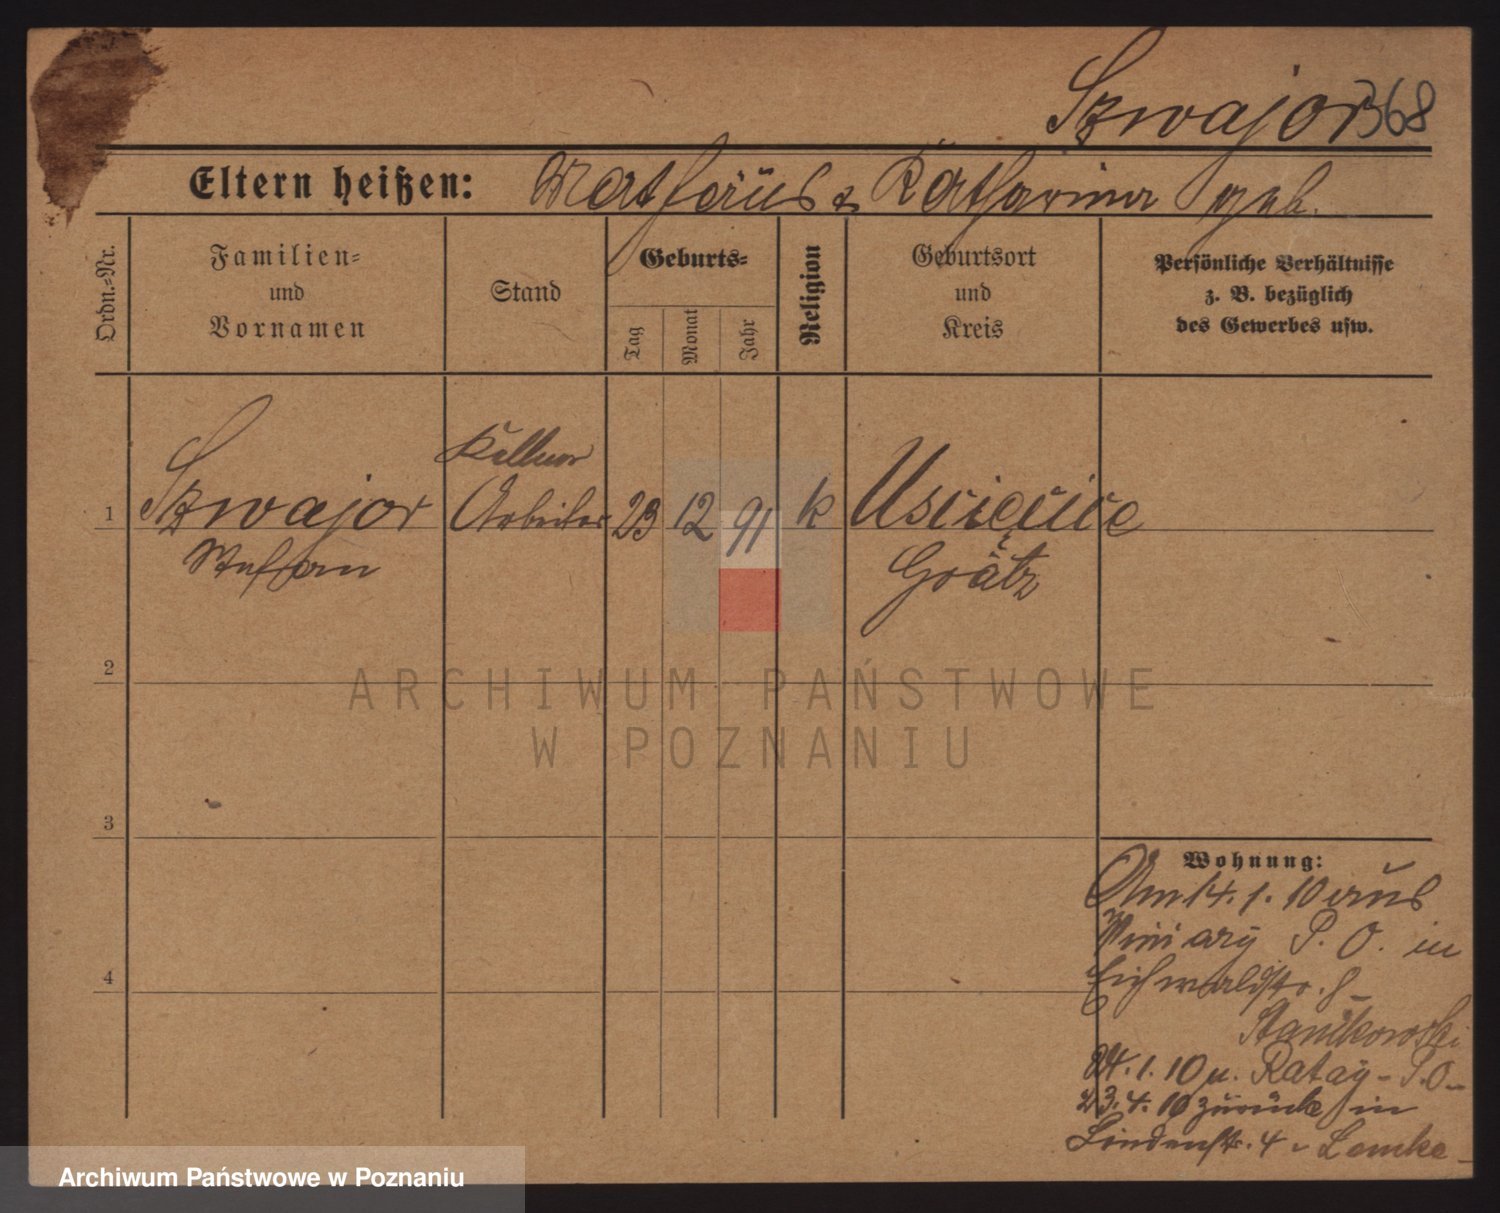 Szwajor 368
Eltern heißen: Mathäus & Katharina geb.
Ordn.=Nr.
Familien=
und
Vornamen
Stand
Geburts=
Tag
Monat
Jahr
Religion
Geburtsort
und
Kreis
Persönliche Verhältnisse
z. B. bezüglich
des Gewerbes usw.
Kellner
1 Szwajor Arbeiter 23 12 91 k
Stefan Grätz
2
ARCHIWUM PAŃSTWOWE
W POZNANIU
3
Wohnung:
Am 14. 1. 10 aus
Winiary P. O. in
Eichwaldstr. 8
Stanikowski
24. 1. 10 n. Rataj - P. O.
4
23. 4. 10 zurück in
Lindenstr. 4 Lemke
Archiwum Państwowe w Poznaniu